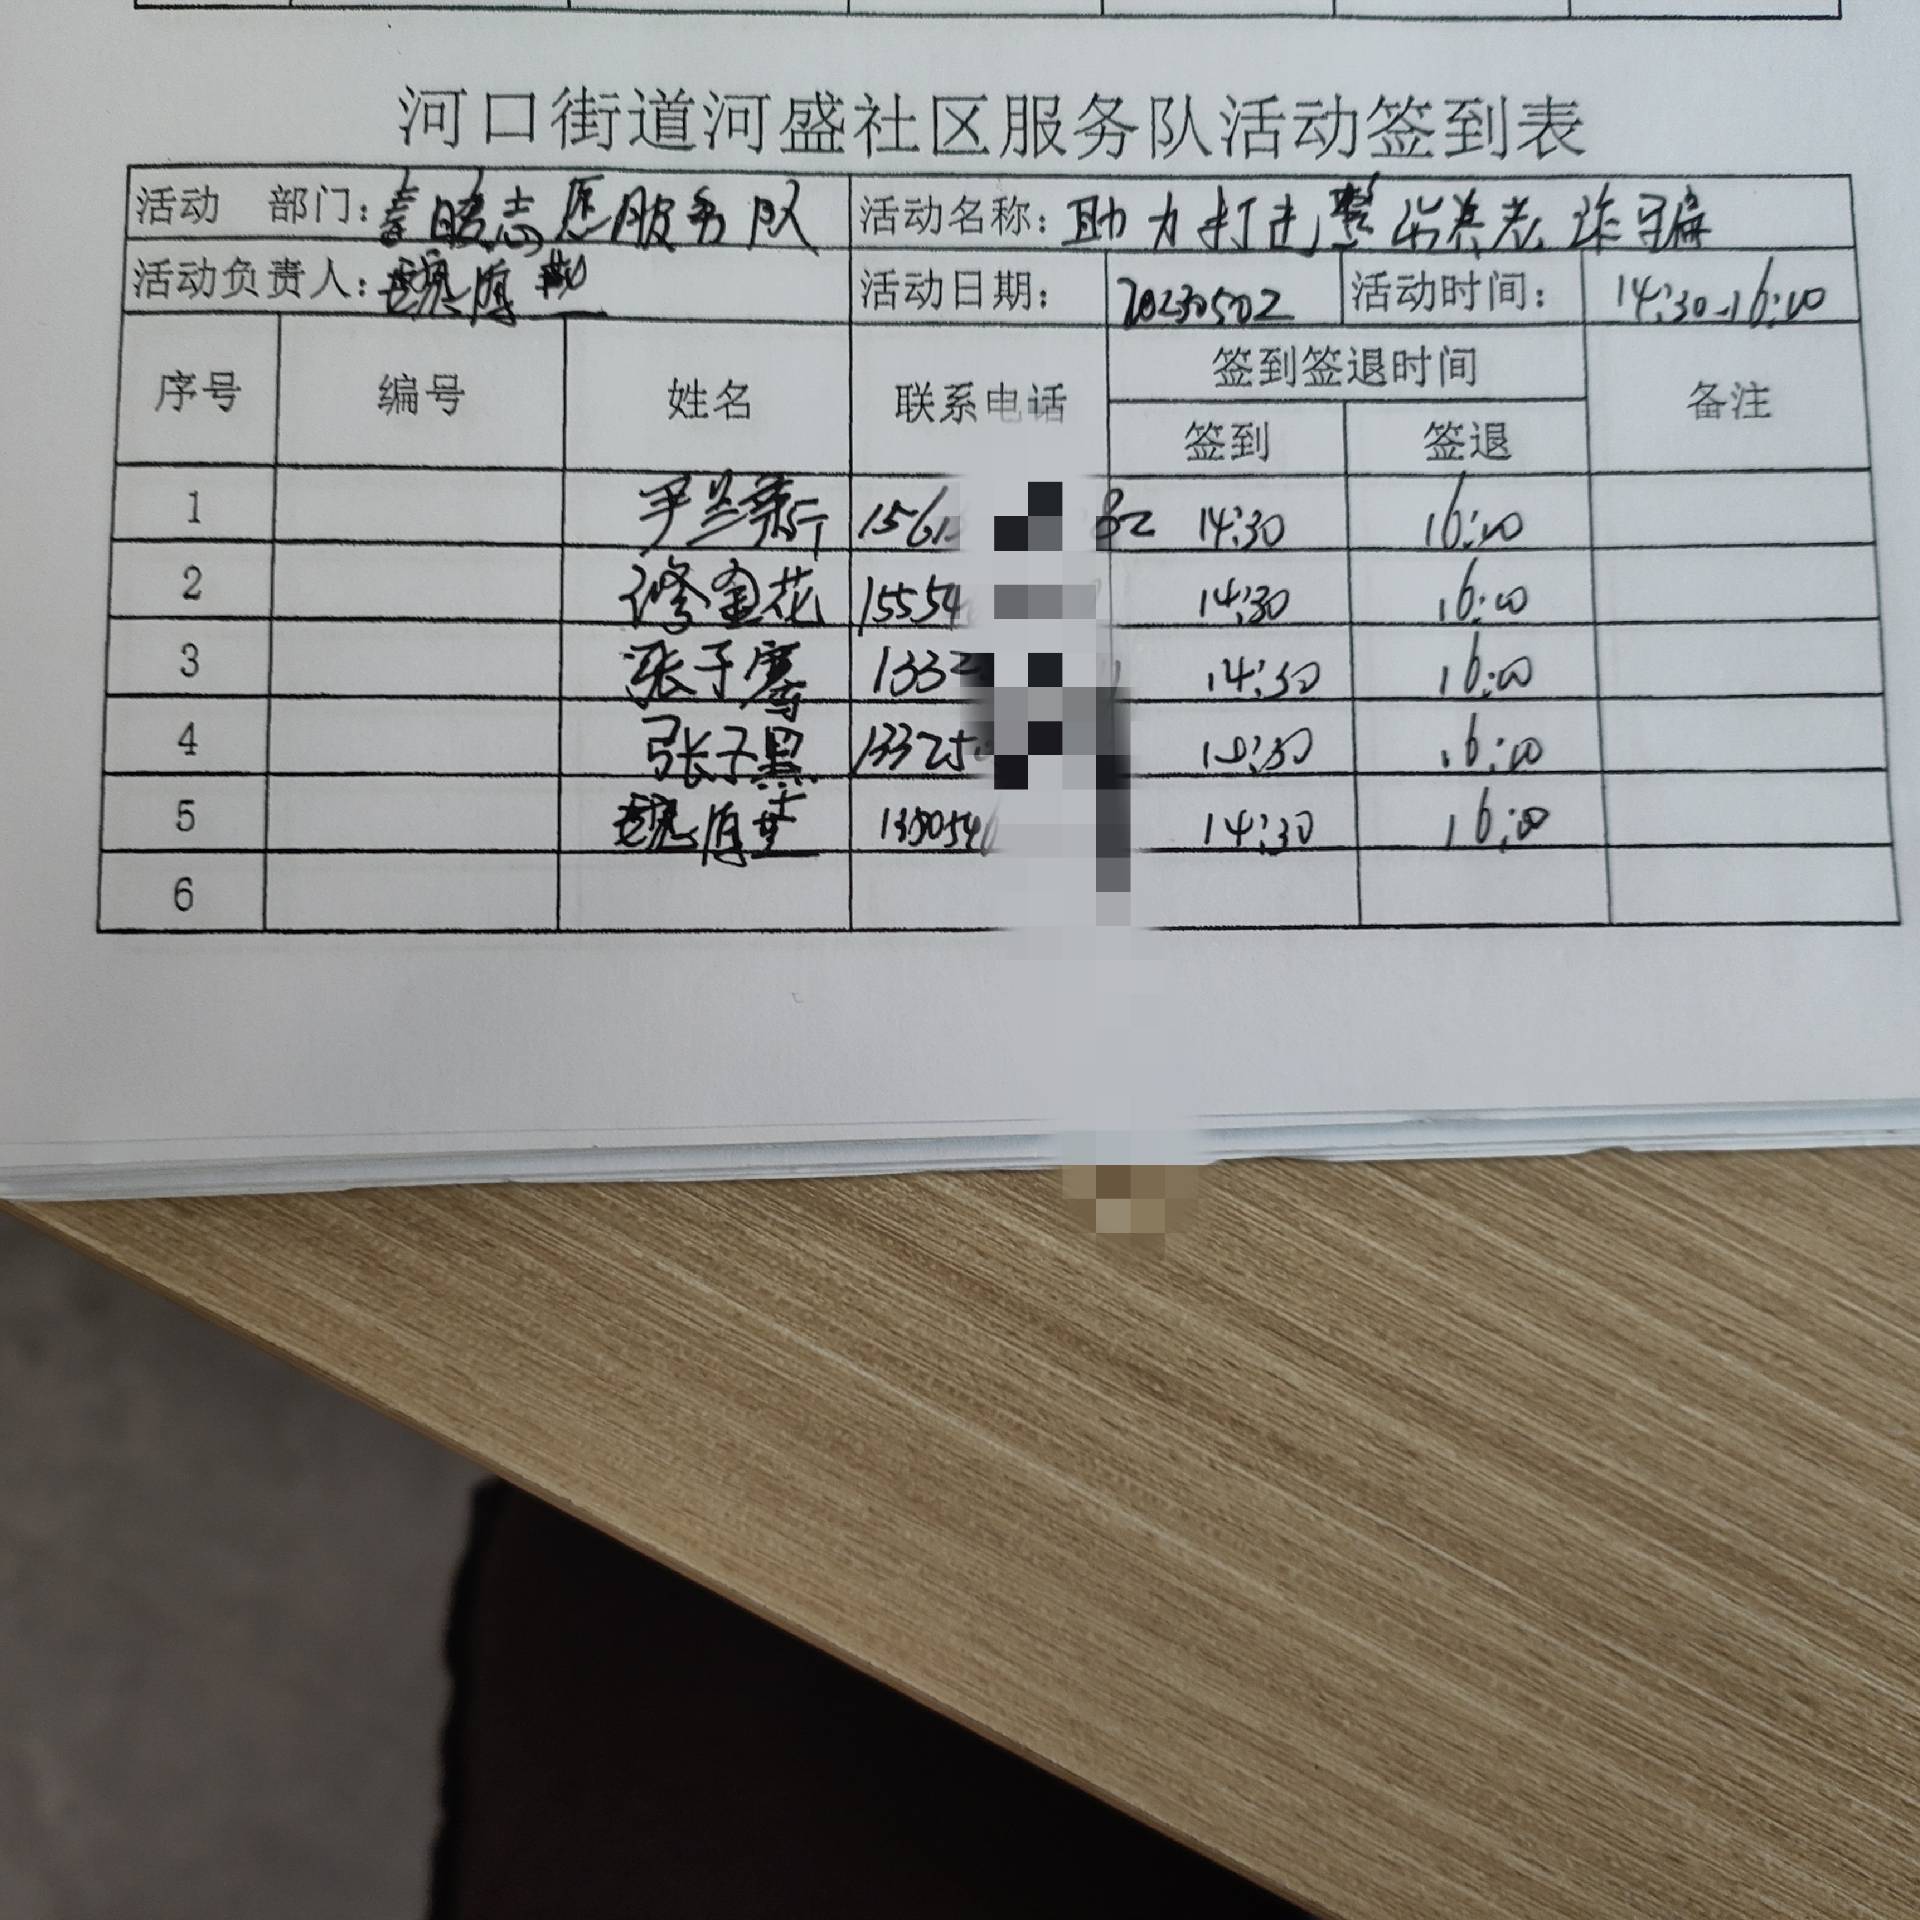 河口街道河盛社区服务队活动签到表
活动 部门: 志愿服务队 活动名称: 助力打击整治养老诈骗
活动负责人: 魏 活动日期: 20230502 活动时间: 14:30-16:00
序号 编号 姓名 联系电话 签到签退时间 备注
签到 签退
1 兰 1561 82 14:30 16:00
2 修金花 1554 14:30 16:00
3 张子骞 1332 14:30 16:00
4 张子墨 13325 16:00
5 魏 1350546 14:30 16:00
6